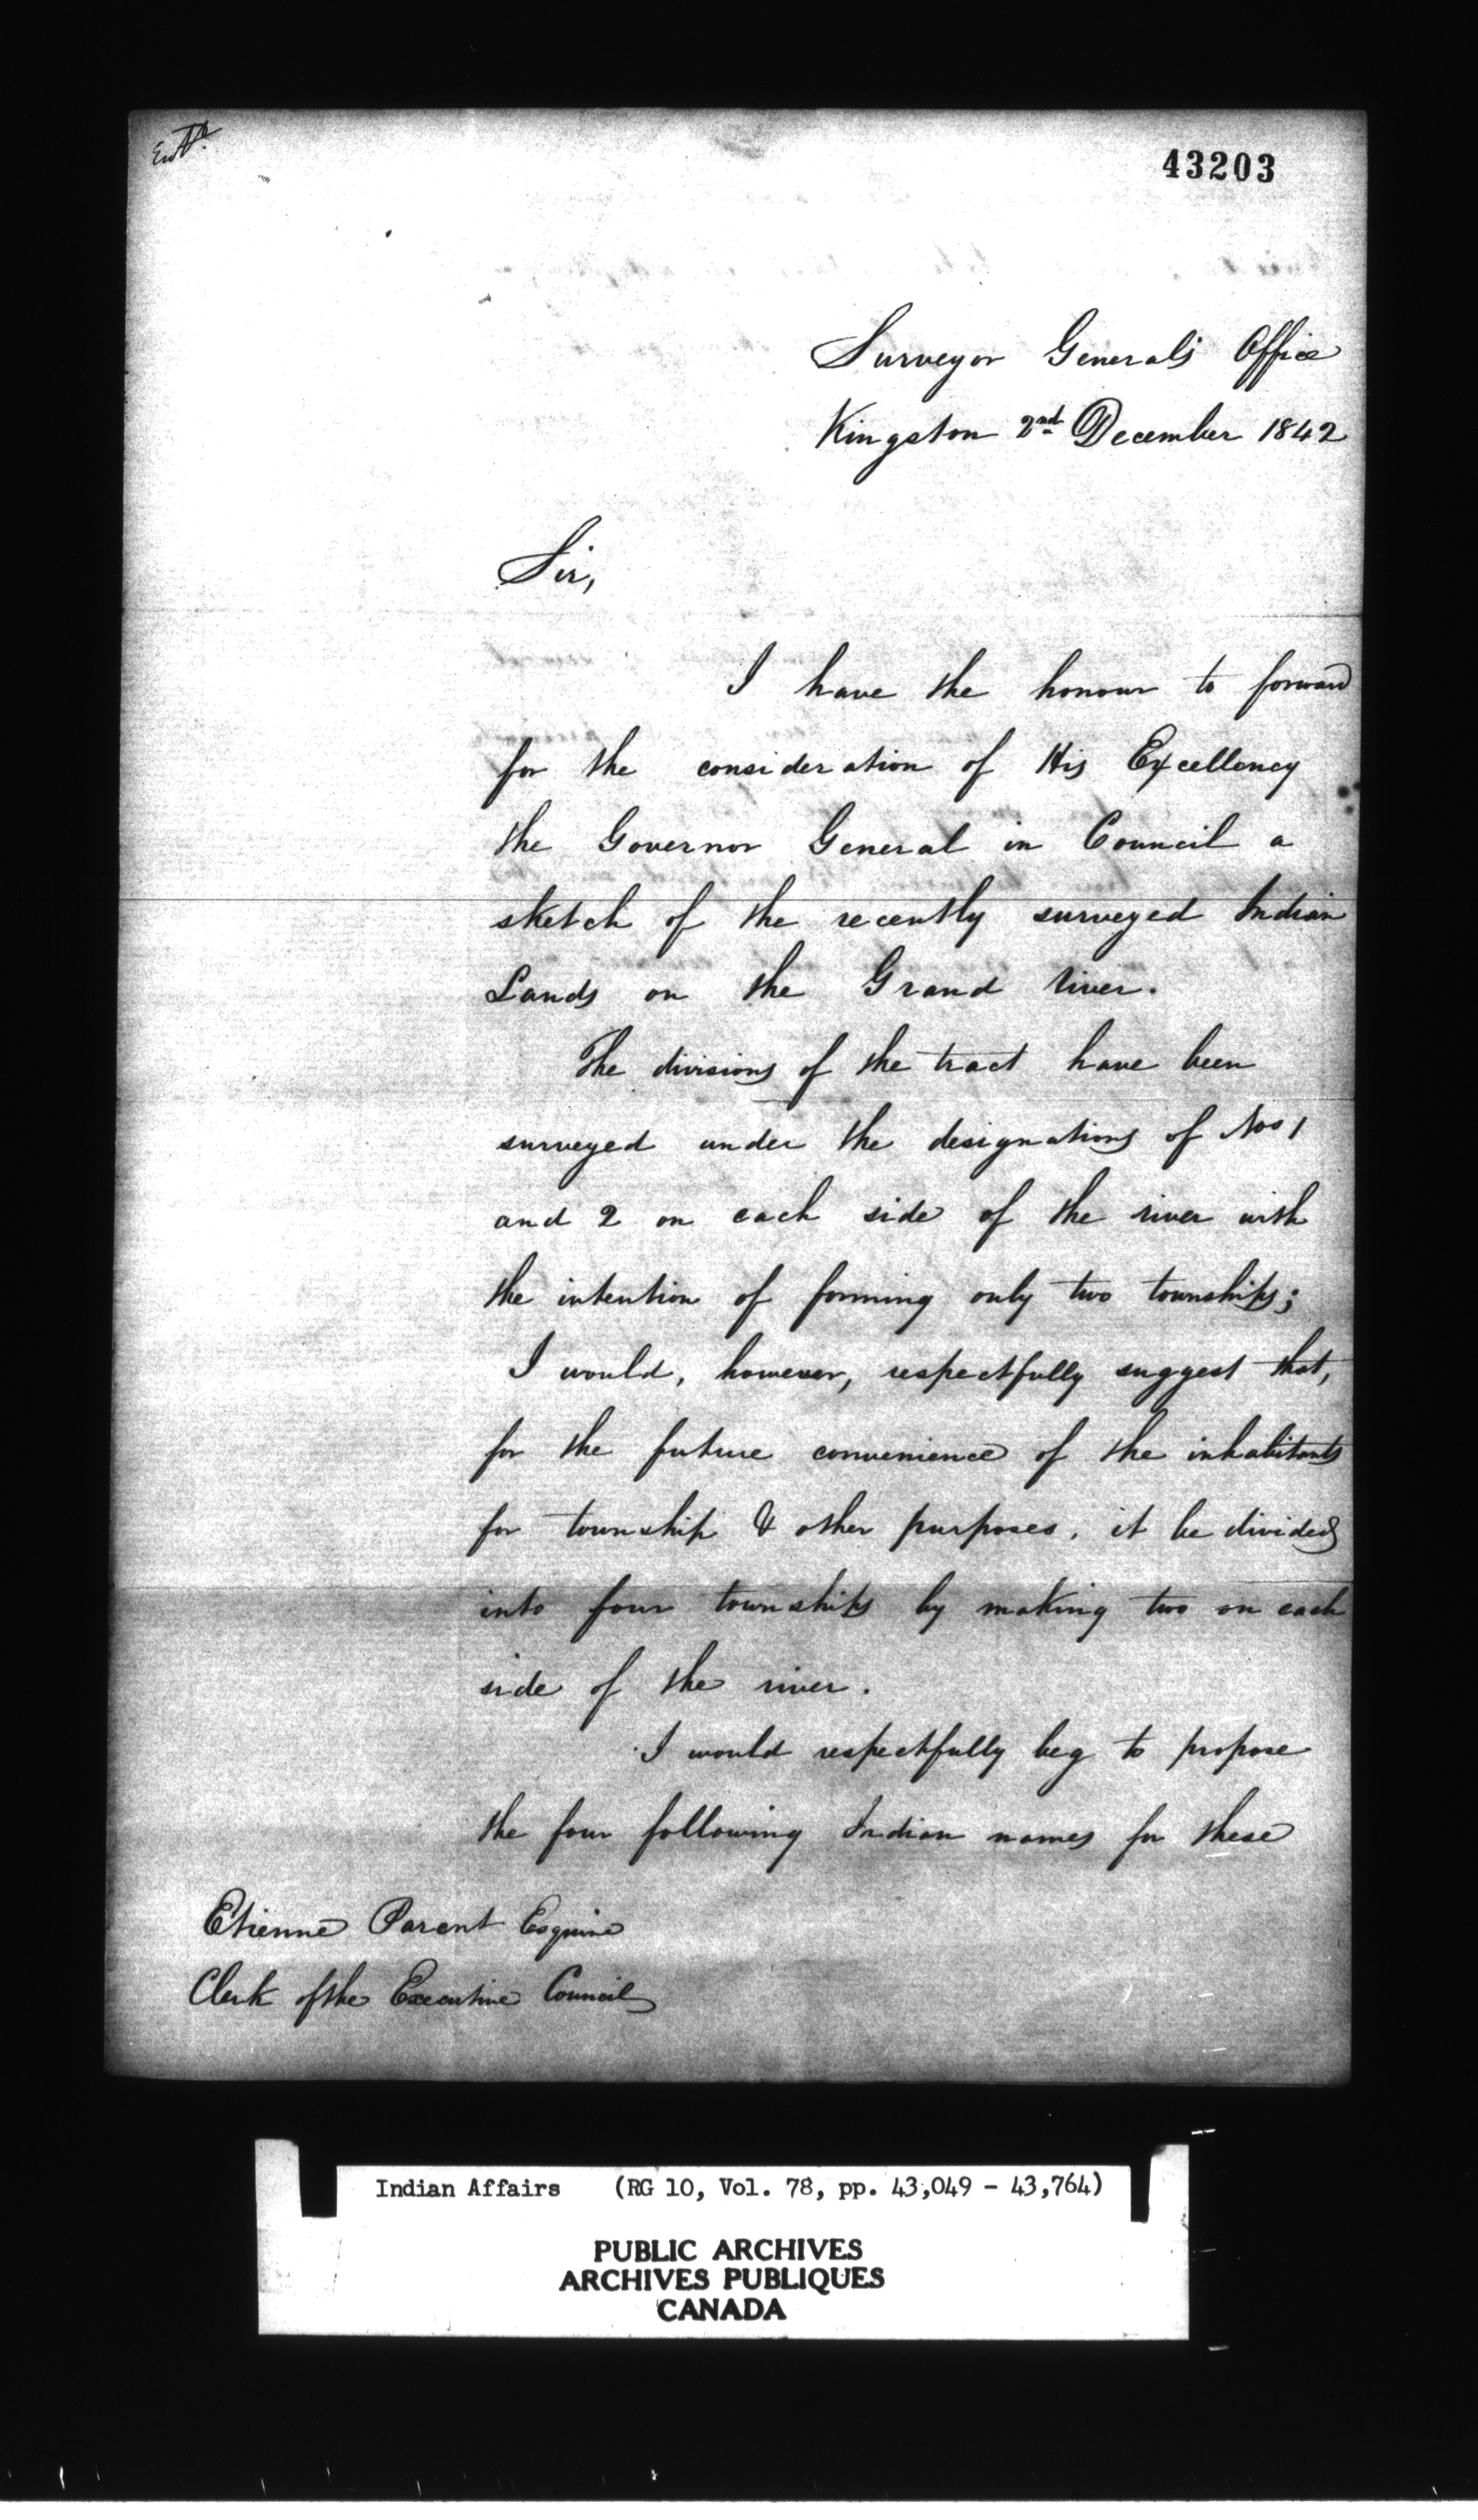 Entd.
43203
Surveyor General's Office
Kingston 2nd December 1842
Sir,
I have the honour to forward
for the consideration of His Excellency
the Governor General in Council a
sketch of the recently surveyed Indian
Lands on the Grand river.
The divisions of the tract have been
surveyed under the designations of Nos 1
and 2 on each side of the river with
the intention of forming only two townships;
I would, however, respectfully suggest that,
for the future convenience of the inhabitants
for township & other purposes, it be divided
into four townships by making two on each
side of the river.
I would respectfully beg to propose
the four following Indian names for these
Etienne Parent Esquire
Clerk of the Executive Council
Indian Affairs (RG 10, Vol. 78, pp. 43,049 - 43,764)
PUBLIC ARCHIVES
ARCHIVES PUBLIQUES
CANADA